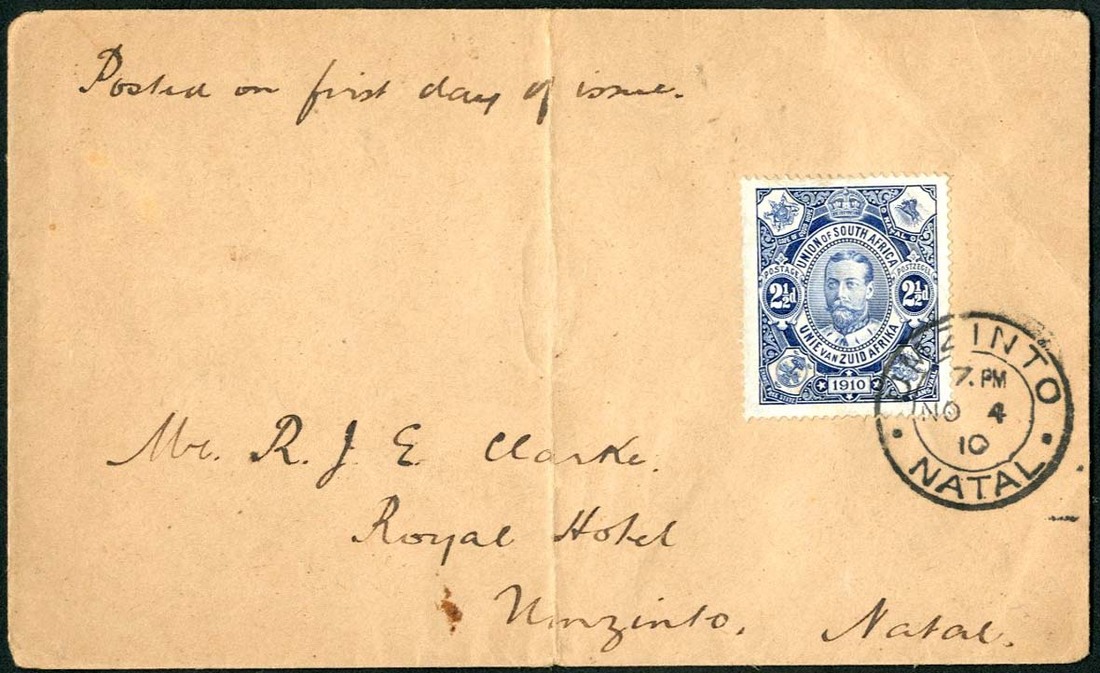 Posted on first day of issue.
UNION OF SOUTH AFRICA
POSTAGE POSTZEGEL
2½d 2½d
UNIE VAN ZUID AFRIKA
1910
UMZINTO
7. PM
NO 4
10
NATAL
Mr. R. J. E. Clarke.
Royal Hotel
Umzinto,
Natal.